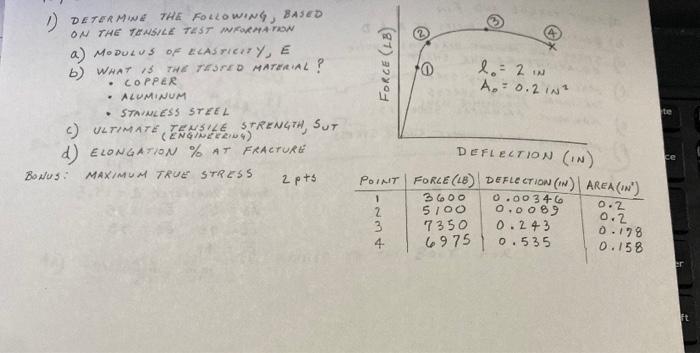 1) DETERMINE THE FOLLOWING, BASED
ON THE TENSILE TEST INFORMATION
a) MODULUS OF ELASTICITY, E
b) WHAT IS THE TESTED MATERIAL?
• COPPER
• ALUMINUM
• STAINLESS STEEL
c) ULTIMATE TENSILE STRENGTH, SUT
(ENGINEERING)
d) ELONGATION % AT FRACTURE
BONUS: MAXIMUM TRUE STRESS 2 pts
FORCE (LB)
① ② ③ ④
l₀ = 2 IN
A₀ = 0.2 IN²
DEFLECTION (IN)
POINT FORCE (LB) DEFLECTION (IN) AREA (IN²)
1 3600 0.00346 0.2
2 5100 0.0089 0.2
3 7350 0.243 0.178
4 6975 0.535 0.158
te
ce
er
ft